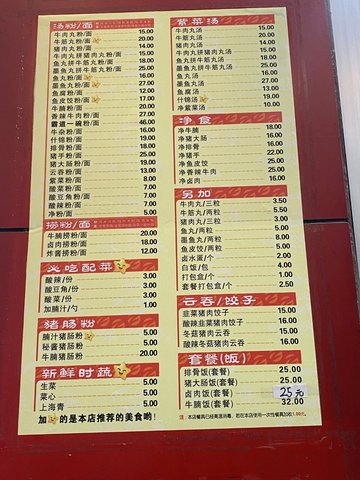 汤粉/面
牛肉丸粉/面 15.00
牛筋丸粉/面 20.00
猪肉丸粉/面 14.00
牛肉丸拼猪肉丸粉/面 15.00
鱼丸拼牛肉丸粉/面 20.00
墨鱼丸拼牛筋丸粉/面 25.00
鱼丸粉/面 16.00
墨鱼丸粉/面 27.00
鱼腐粉/面 12.00
鱼皮饺粉/面 17.00
牛腩粉/面 20.00
香辣牛肉粉/面 27.00
霸道一碗粉/面 46.00
牛杂粉/面 16.00
什锦粉/面 19.00
排骨粉/面 18.00
猪手粉/面 25.00
猪大肠粉/面 19.00
云吞粉/面 13.00
紫菜粉/面 8.00
酸菜粉/面 7.00
酸豆角粉/面 7.00
酸辣粉/面 7.00
净粉/面 5.00
捞粉/面
牛腩捞粉/面 20.00
卤肉捞粉/面 18.00
炸酱捞粉/面 12.00
必吃配菜
酸辣/份 3.00
酸豆角/份 3.00
酸菜/份 3.00
加腩汁/勺 1.00
猪肠粉
腩汁猪肠粉 5.00
秘酱猪肠粉 5.00
牛腩猪肠粉 20.00
新鲜时蔬
生菜 5.00
菜心 5.00
上海青 5.00
加 的是本店推荐的美食哟!
紫菜汤
牛肉丸汤 15.00
牛筋丸汤 20.00
猪肉丸汤 14.00
牛肉丸拼猪肉丸汤 15.00
鱼丸拼牛肉丸汤 20.00
墨鱼丸拼牛筋丸汤 25.00
鱼丸汤 16.00
墨鱼丸汤 27.00
鱼腐汤 13.00
什锦汤 19.00
净紫菜汤 10.00
净食
净牛腩 18.00
净猪大肠 16.00
净排骨 16.00
净猪手 22.00
净鱼皮饺 15.00
净香辣牛肉 25.00
净卤肉 16.00
另加
牛肉丸/三粒 3.50
牛筋丸/两粒 5.50
猪肉丸/三粒 3.50
鱼丸/两粒 5.00
墨鱼丸/两粒 8.00
鱼皮饺/两粒 5.00
卤水蛋/个 2.00
白饭/包 4.00
打包盒/个 1.00
套餐打包盒/个 2.50
云吞/饺子
韭菜猪肉饺子 15.00
酸辣韭菜猪肉饺子 16.00
冬菇猪肉云吞 15.00
酸辣冬菇猪肉云吞 16.00
套餐(饭)
排骨饭(套餐) 25.00
猪大肠饭(套餐) 25.00
卤肉饭(套餐) 25元
牛腩饭(套餐) 32.00
注:本店餐具已经高温消毒,若在本店使用一次性餐具加收1.00元。